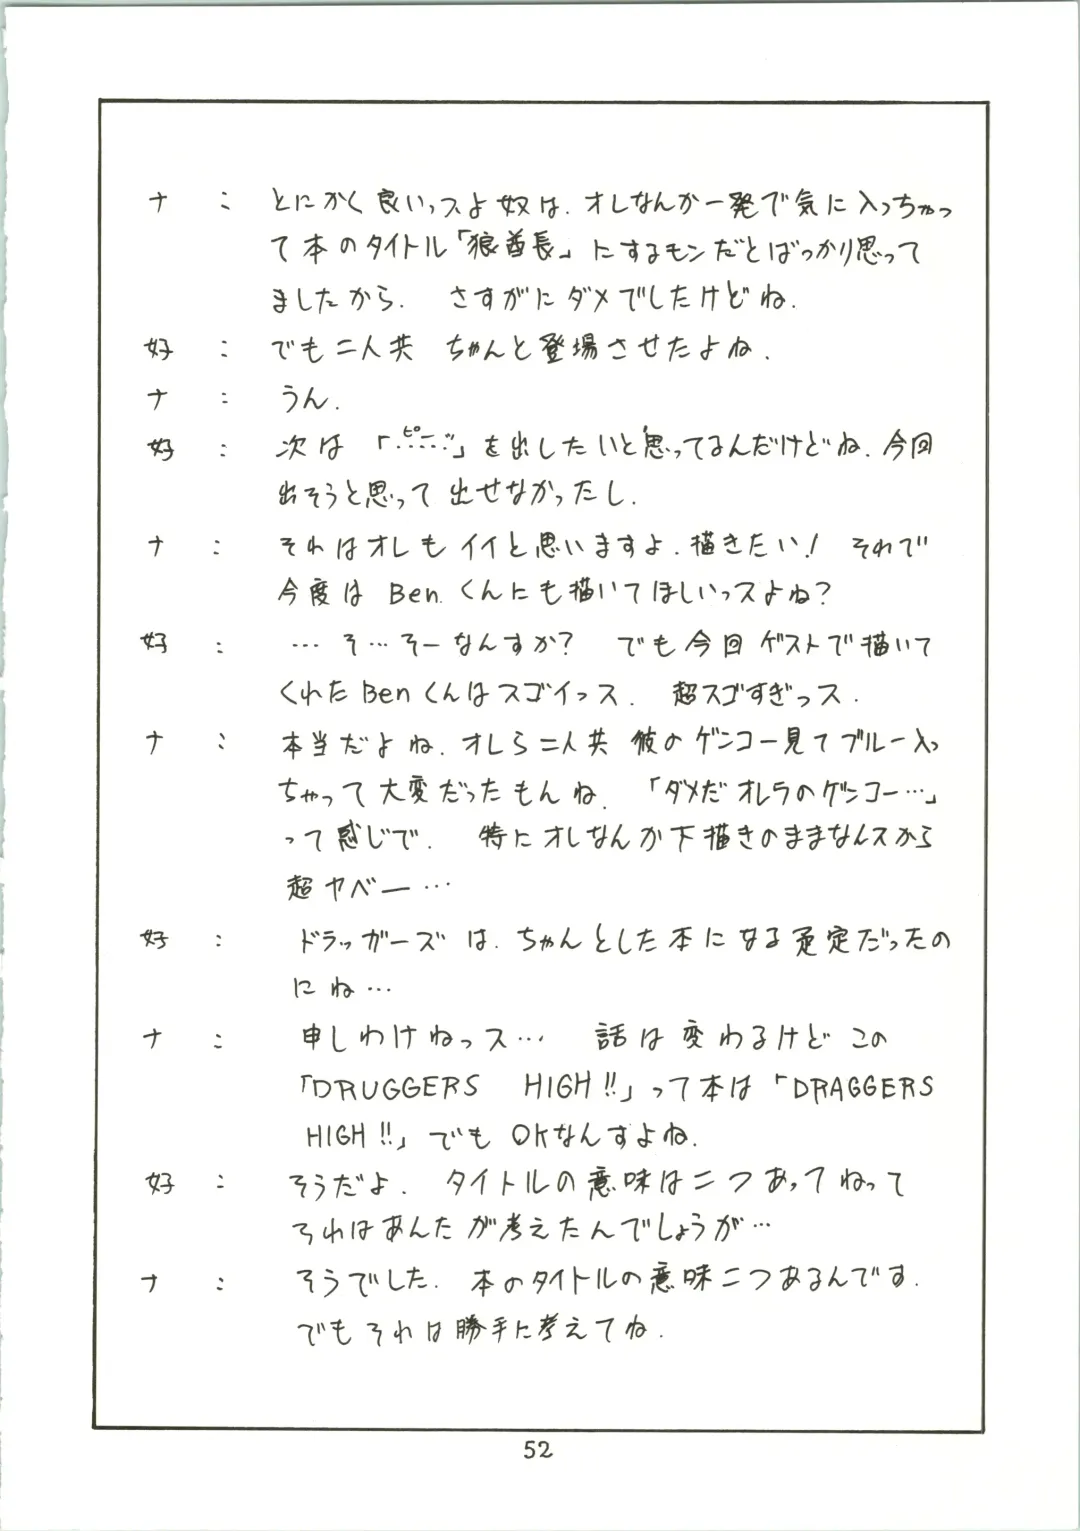 ナ : とにかく良いっスよ奴は. オレなんか一発で気に入っちゃっ
て本のタイトル「狼酋長」にするモンだとばっかり思って
ましたから. さすがにダメでしたけどね.
好 : でも二人共 ちゃんと登場させたよね.
ナ : うん.
好 : 次は「ピー」を出したいと思ってるんだけどね. 今回
出そうと思って出せなかったし.
ナ : それはオレもイイと思いますよ. 描きたい! それで
今度は Ben. くんにも描いてほしいっスよね?
好 : …そ…そーなんすか? でも今回ゲストで描いて
くれたBenくんはスゴイっス. 超スゴすぎっス.
ナ : 本当だよね. オレら二人共 彼のゲンコー見てブルー入っ
ちゃって大変だったもんね. 「ダメだ オレラのゲンコー…」
って感じで. 特にオレなんか下描きのままなんスから
超ヤベー…
好 : ドラッガーズは. ちゃんとした本になる予定だったの
にね…
ナ : 申しわけねっス… 話は変わるけど この
「DRUGGERS HIGH!!」って本は「DRAGGERS
HIGH!!」でも OKなんすよね.
好 : そうだよ. タイトルの意味は二つあってねって
それはあんたが考えたんでしょうが…
ナ : そうでした. 本のタイトルの意味二つあるんです.
でもそれは勝手に考えてね.
52